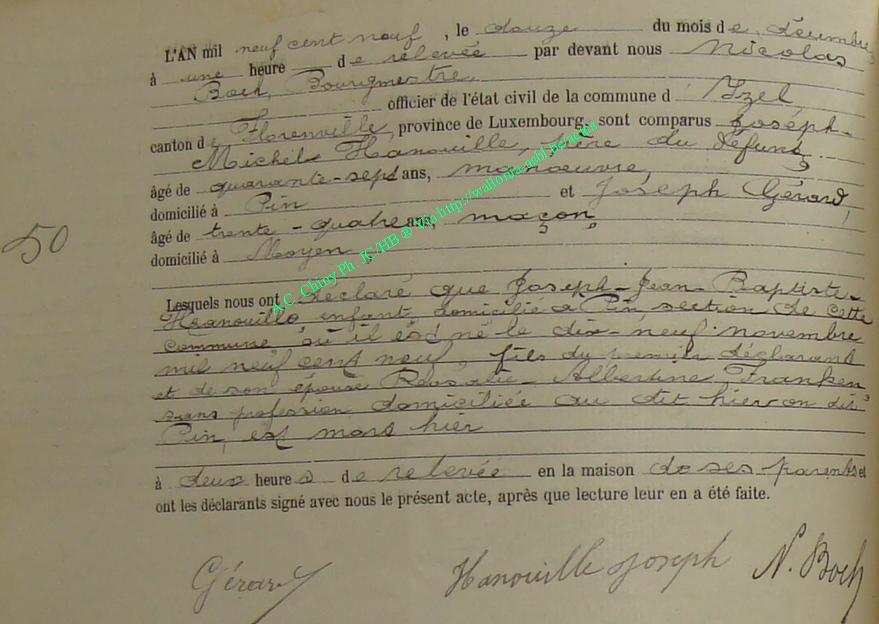 L'AN mil neuf cent neuf, le douze du mois de décembre,
à une heure de relevée par devant nous Nicolas
Boch, Bourgmestre,
officier de l'état civil de la commune d'Izel,
canton de Florenville, province de Luxembourg, sont comparus Joseph-
Michel Hanouille, père du défunt
âgé de quarante-sept ans, manoeuvre,
domicilié à Pin et Joseph Gérard,
âgé de trente-quatre ans, maçon,
domicilié à Moyen
50
A.C. Chiny Ph. JC/HB @ Via http://wallonia-asbl.be/actes
Lesquels nous ont déclaré que Joseph-Jean-Baptiste-
Hanouille, enfant, domicilié à Pin, section de cette
commune où il est né le dix-neuf novembre
mil neuf cent neuf, fils du premier déclarant
et de son épouse Albertine Franken
sans profession, domiciliée au dit
Pin, est mort hier
à deux heures de relevée en la maison de ses parents et
ont les déclarants signé avec nous le présent acte, après que lecture leur en a été faite.
Gérard Hanouille Joseph N. Boch